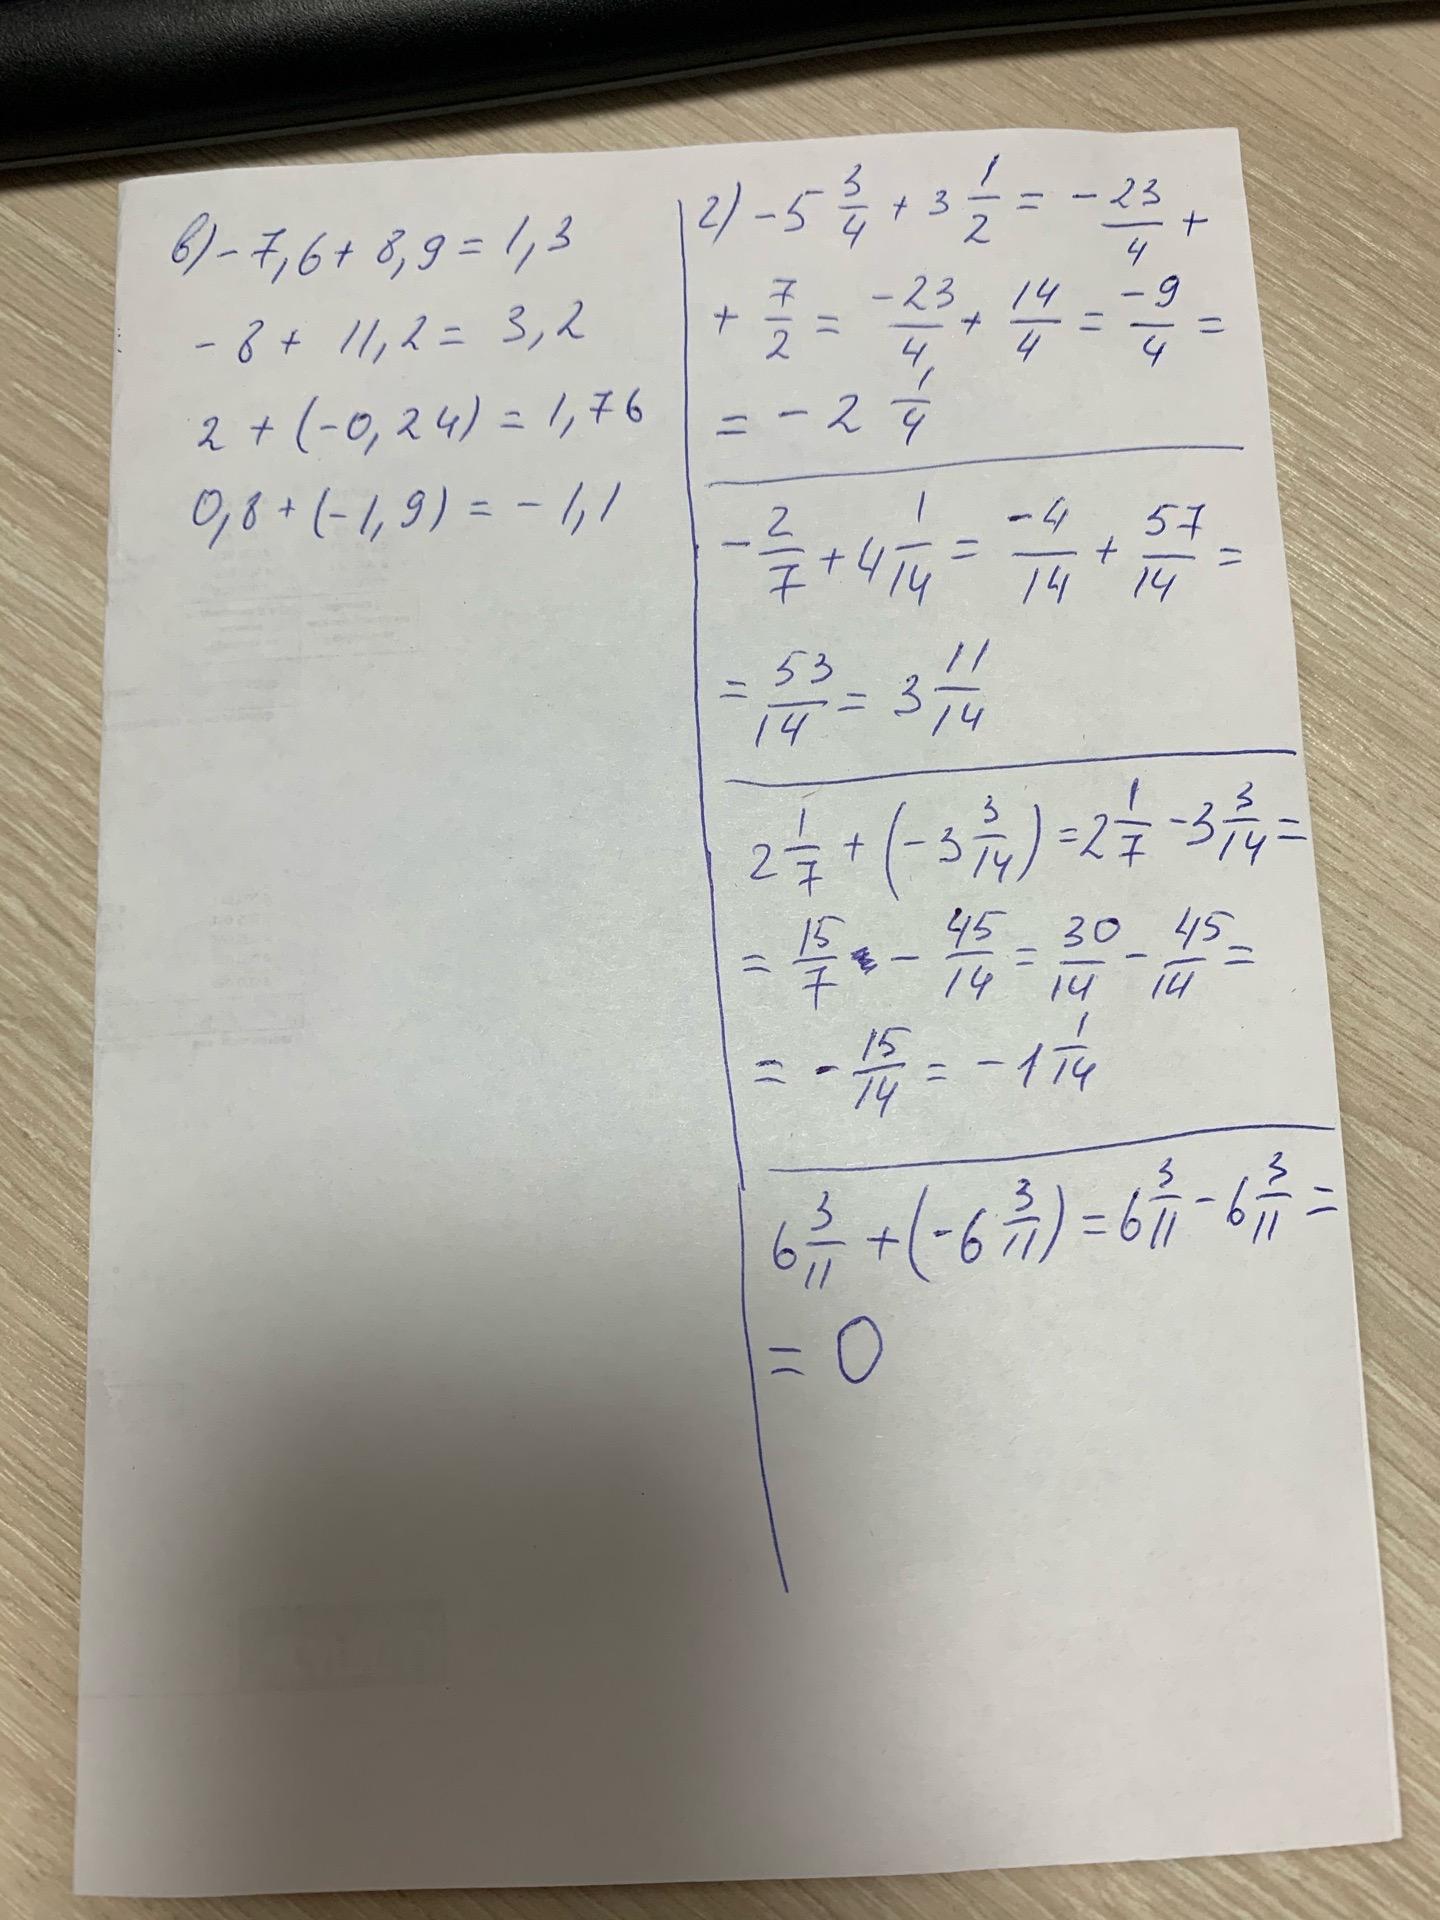 в) -7,6 + 8,9 = 1,3
-8 + 11,2 = 3,2
2 + (-0,24) = 1,76
0,8 + (-1,9) = -1,1
г) -5 3/4 + 3 1/2 = - 23/4 +
+ 7/2 = -23/4 + 14/4 = -9/4 =
= -2 1/4
- 2/7 + 4 1/14 = -4/14 + 57/14 =
= 53/14 = 3 11/14
2 1/7 + (-3 3/14) = 2 1/7 - 3 3/14 =
= 15/7 - 45/14 = 30/14 - 45/14 =
= - 15/14 = -1 1/14
6 3/11 + (-6 3/11) = 6 3/11 - 6 3/11 =
= 0